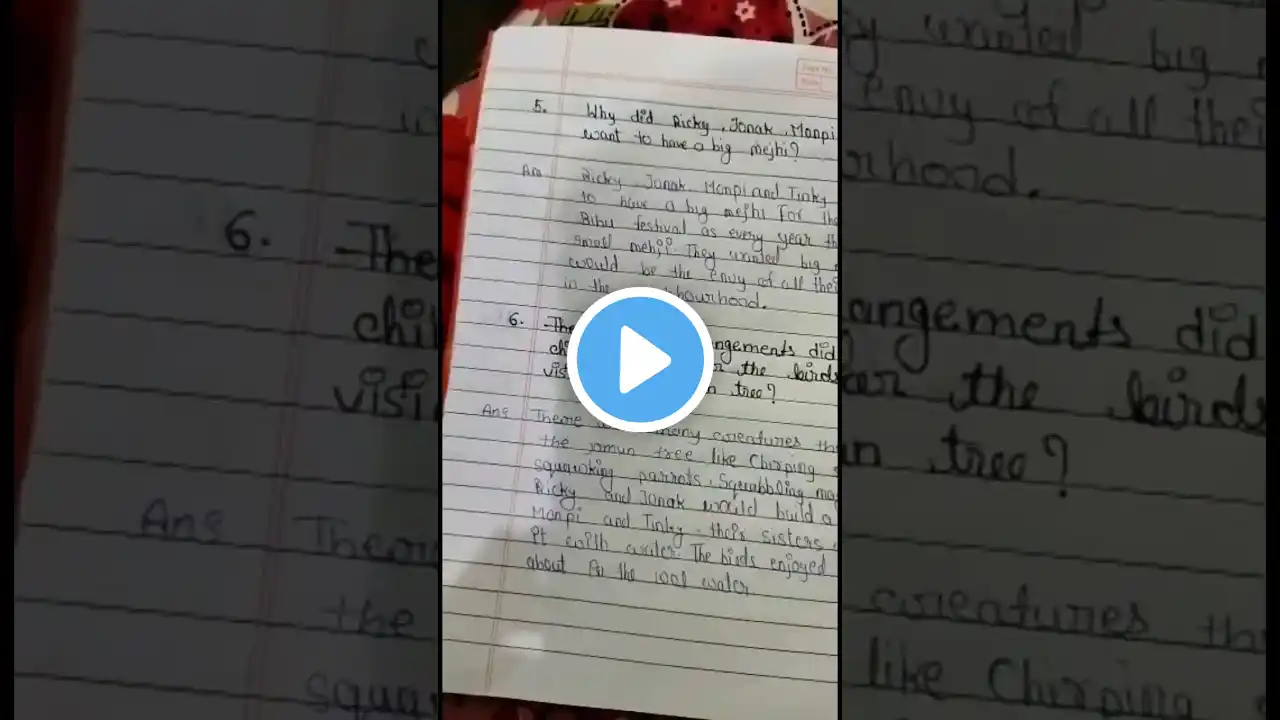 5. Why did Ricky, Jonak, Monpi
want to have a big mejhi?
Ans Ricky Jonak Monpi and Tinky
to have a big mejhi for the
Bihu festival as every year
small mehji. They wanted big
would be the envy of all their
in the
6.
did
the birds
tree?
Ans There many creatures
the jamun tree like Chirping
squawking parrots, Squabbling
Ricky and Jonak would build a
Monpi and Tinky - their sisters
it with water. The birds enjoyed
about in the cool water